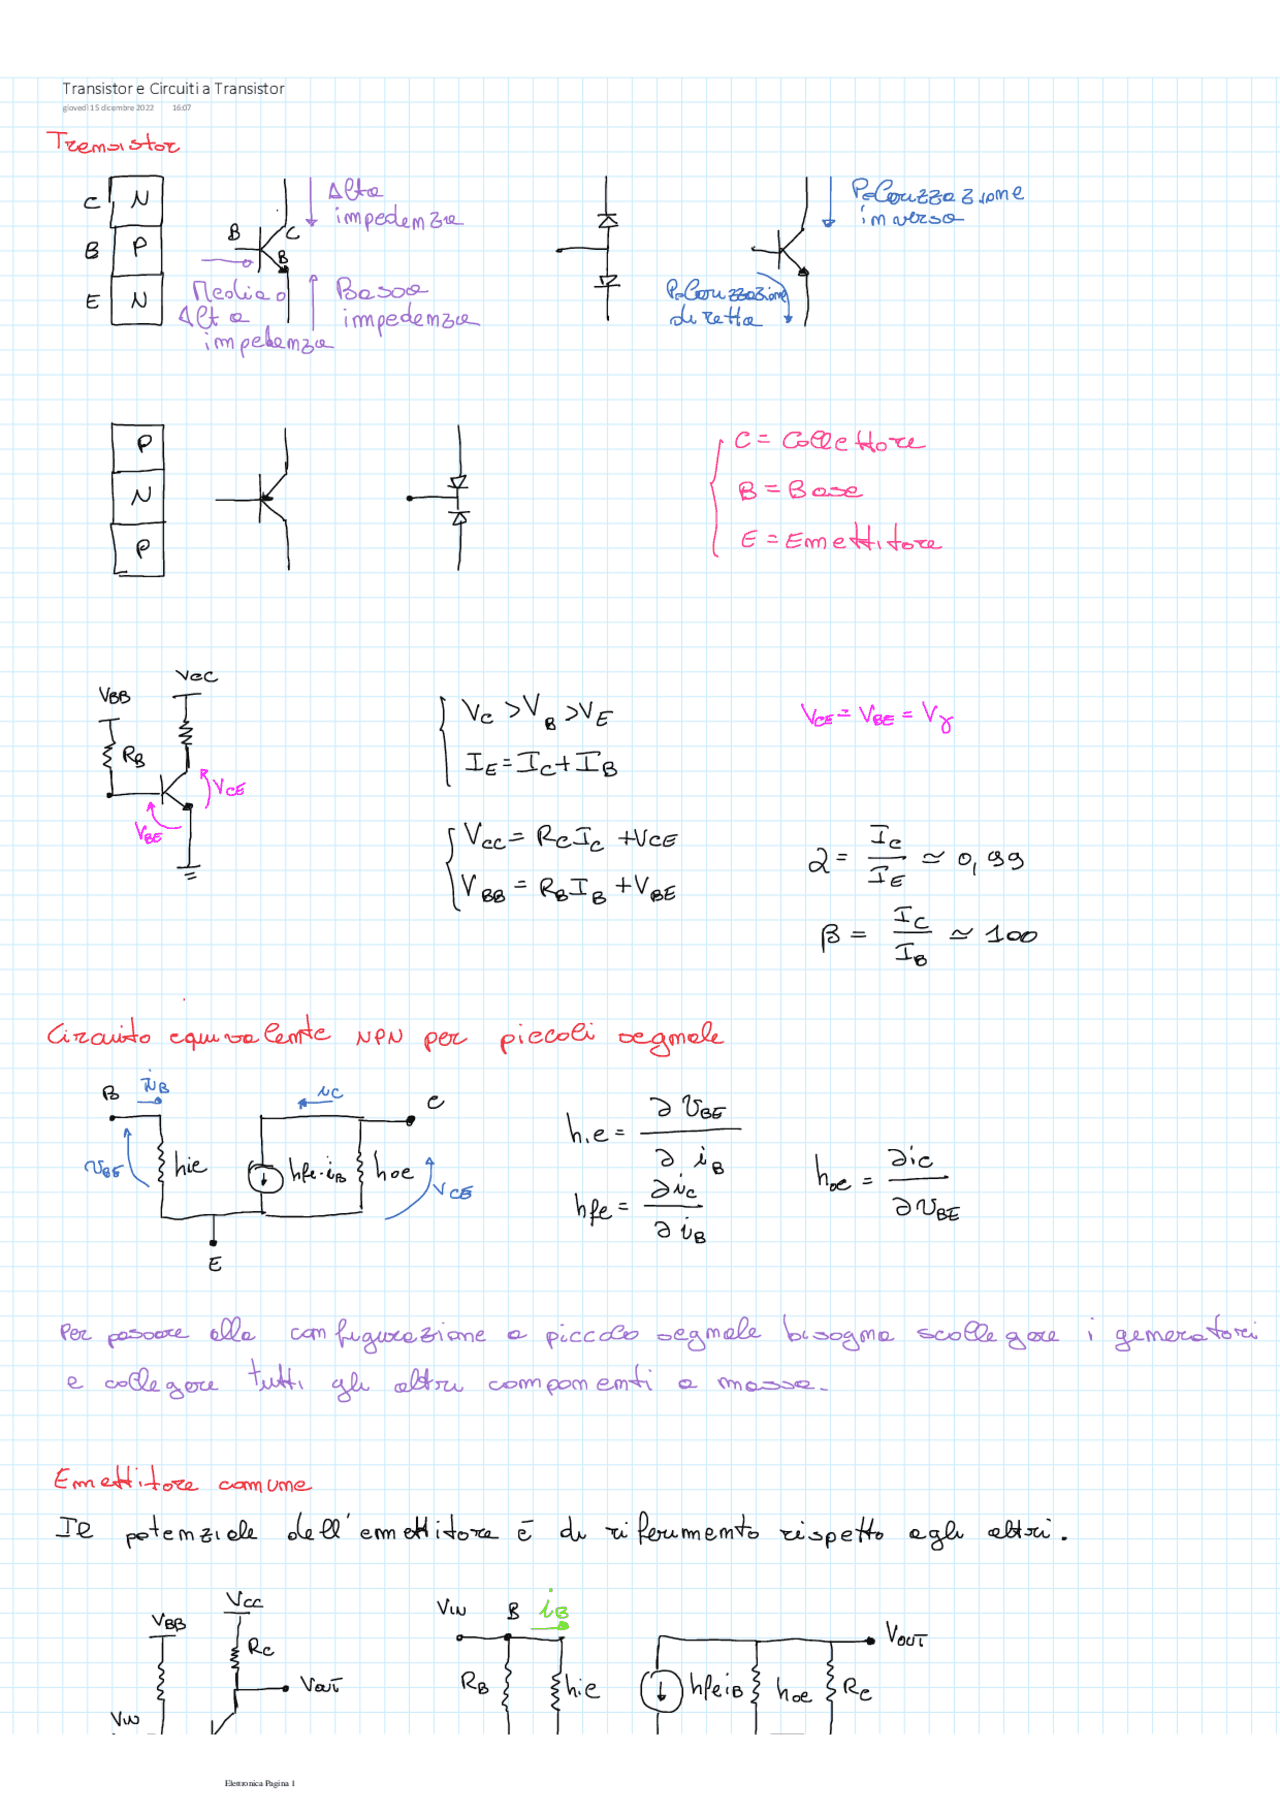 Transistor e Circuiti a Transistor
giovedì 15 dicembre 2022 16:07
Transistor
C N
B P
E N
B C
B
Alta
impedenza
Media o
Alta
impedenza
Bassa
impedenza
Polarizzazione
inversa
Polarizzazione
diretta
P
N
P
C = Collettore
B = Base
E = Emettitore
VBB VCC
RB
VCE
VBE
VC > VB > VE
IE = IC + IB
VCE = VBE = Vγ
VCC = RC IC + VCE
VBB = RB IB + VBE
α = IC / IE ≃ 0,99
β = IC / IB ≃ 100
Circuito equivalente NPN per piccoli segnale
B iB iC C
vBE hie hfe·iB hoe VCE
E
hie = ∂vBE / ∂iB
hfe = ∂ic / ∂iB
hoe = ∂ic / ∂vBE
Per passare alla configurazione a piccolo segnale bisogna scollegare i generatori
e collegare tutti gli altri componenti a massa.
Emettitore comune
Il potenziale dell'emettitore è di riferimento rispetto agli altri.
VBB VCC
RC
VOUT
VIN
VIN B iB
RB hie hfe iB hoe RC
VOUT
Elettronica Pagina 1